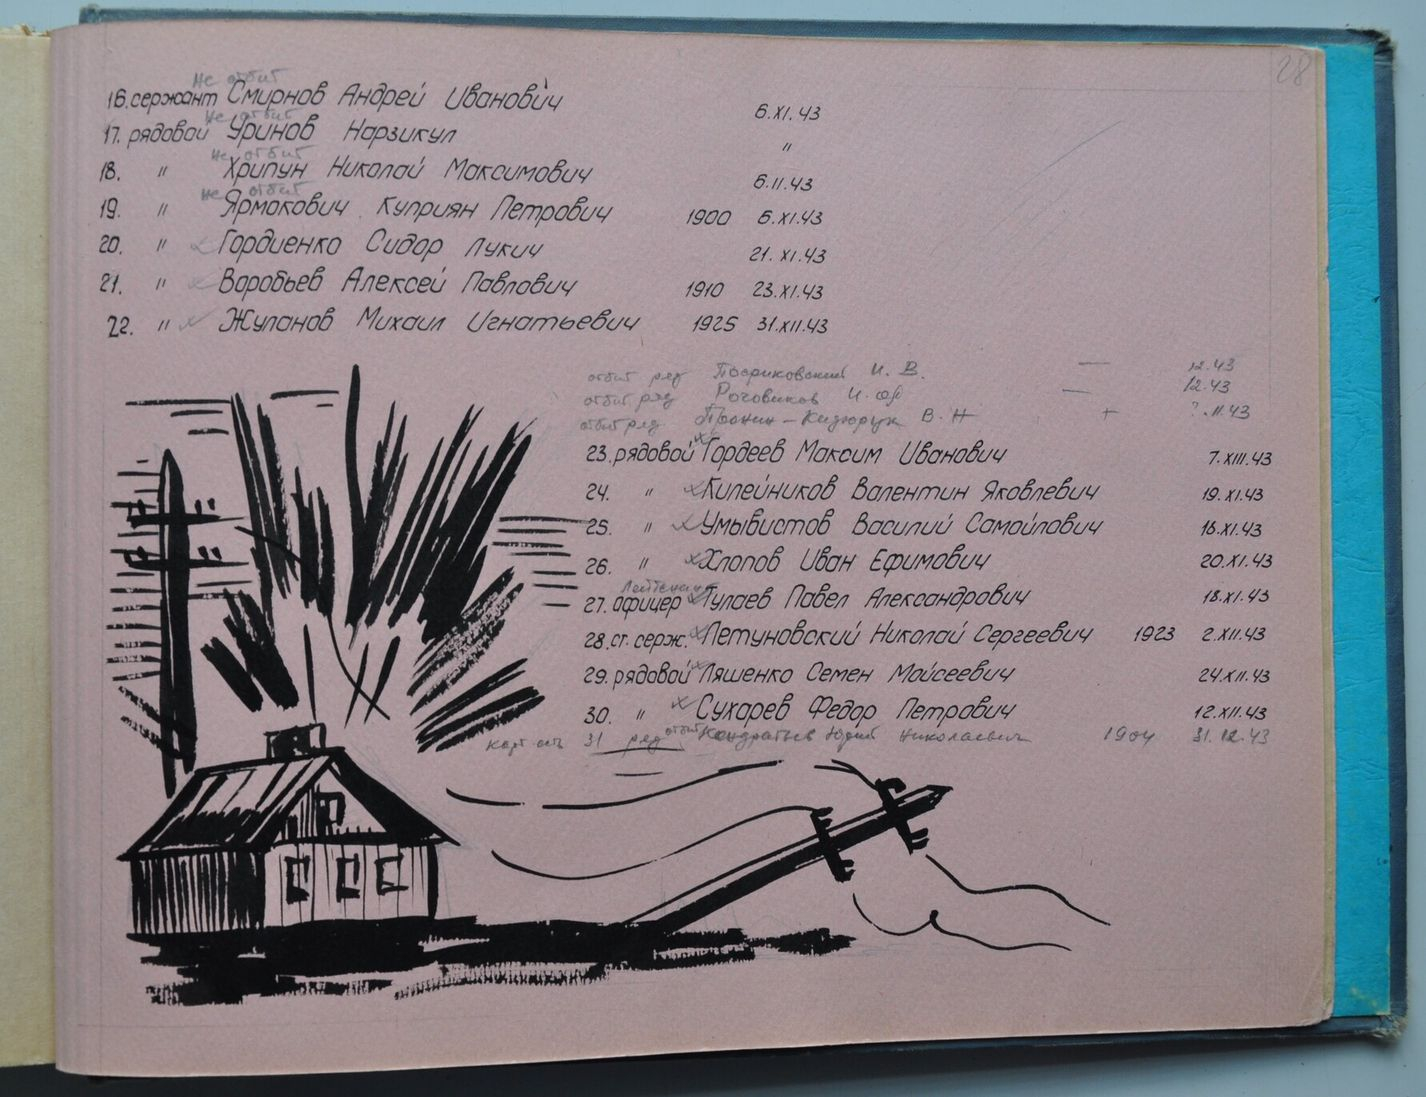 28
не отбит
16. сержант Смирнов Андрей Иванович 6.XI.43
не отбит
17. рядовой Уринов Нарзикул "
не отбит
18. " Хрипун Николай Максимович 6.11.43
не отбит
19. " Ярмакович Куприян Петрович 1900 6.XI.43
20. " Гордиенко Сидор Лукич 21.XI.43
21. " Воробьев Алексей Павлович 1910 23.XI.43
22. " Жуланов Михаил Игнатьевич 1925 31.XII.43
отбит ряд И. В. — 12.43
отбит ряд Роговиков И. Ф — 12.43
отбит ряд В. Н + ?.11.43
23. рядовой Гордеев Максим Иванович 7.XIII.43
24. " Килейников Валентин Яковлевич 19.XI.43
25. " Умывистов Василий Самойлович 18.XI.43
26. " Хлопов Иван Ефимович 20.XI.43
Лейтенант
27. офицер Тулаев Павел Александрович 18.XI.43
28. ст. серж. Петуновский Николай Сергеевич 1923 2.XII.43
29. рядовой Ляшенко Семен Мойсеевич 24.XII.43
30. " Сухарев Федор Петрович 12.XII.43
31 ряд отбит Кондратьев Юрий Николаевич 1904 31.12.43